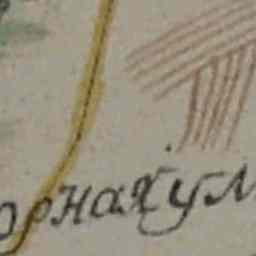 орная ул